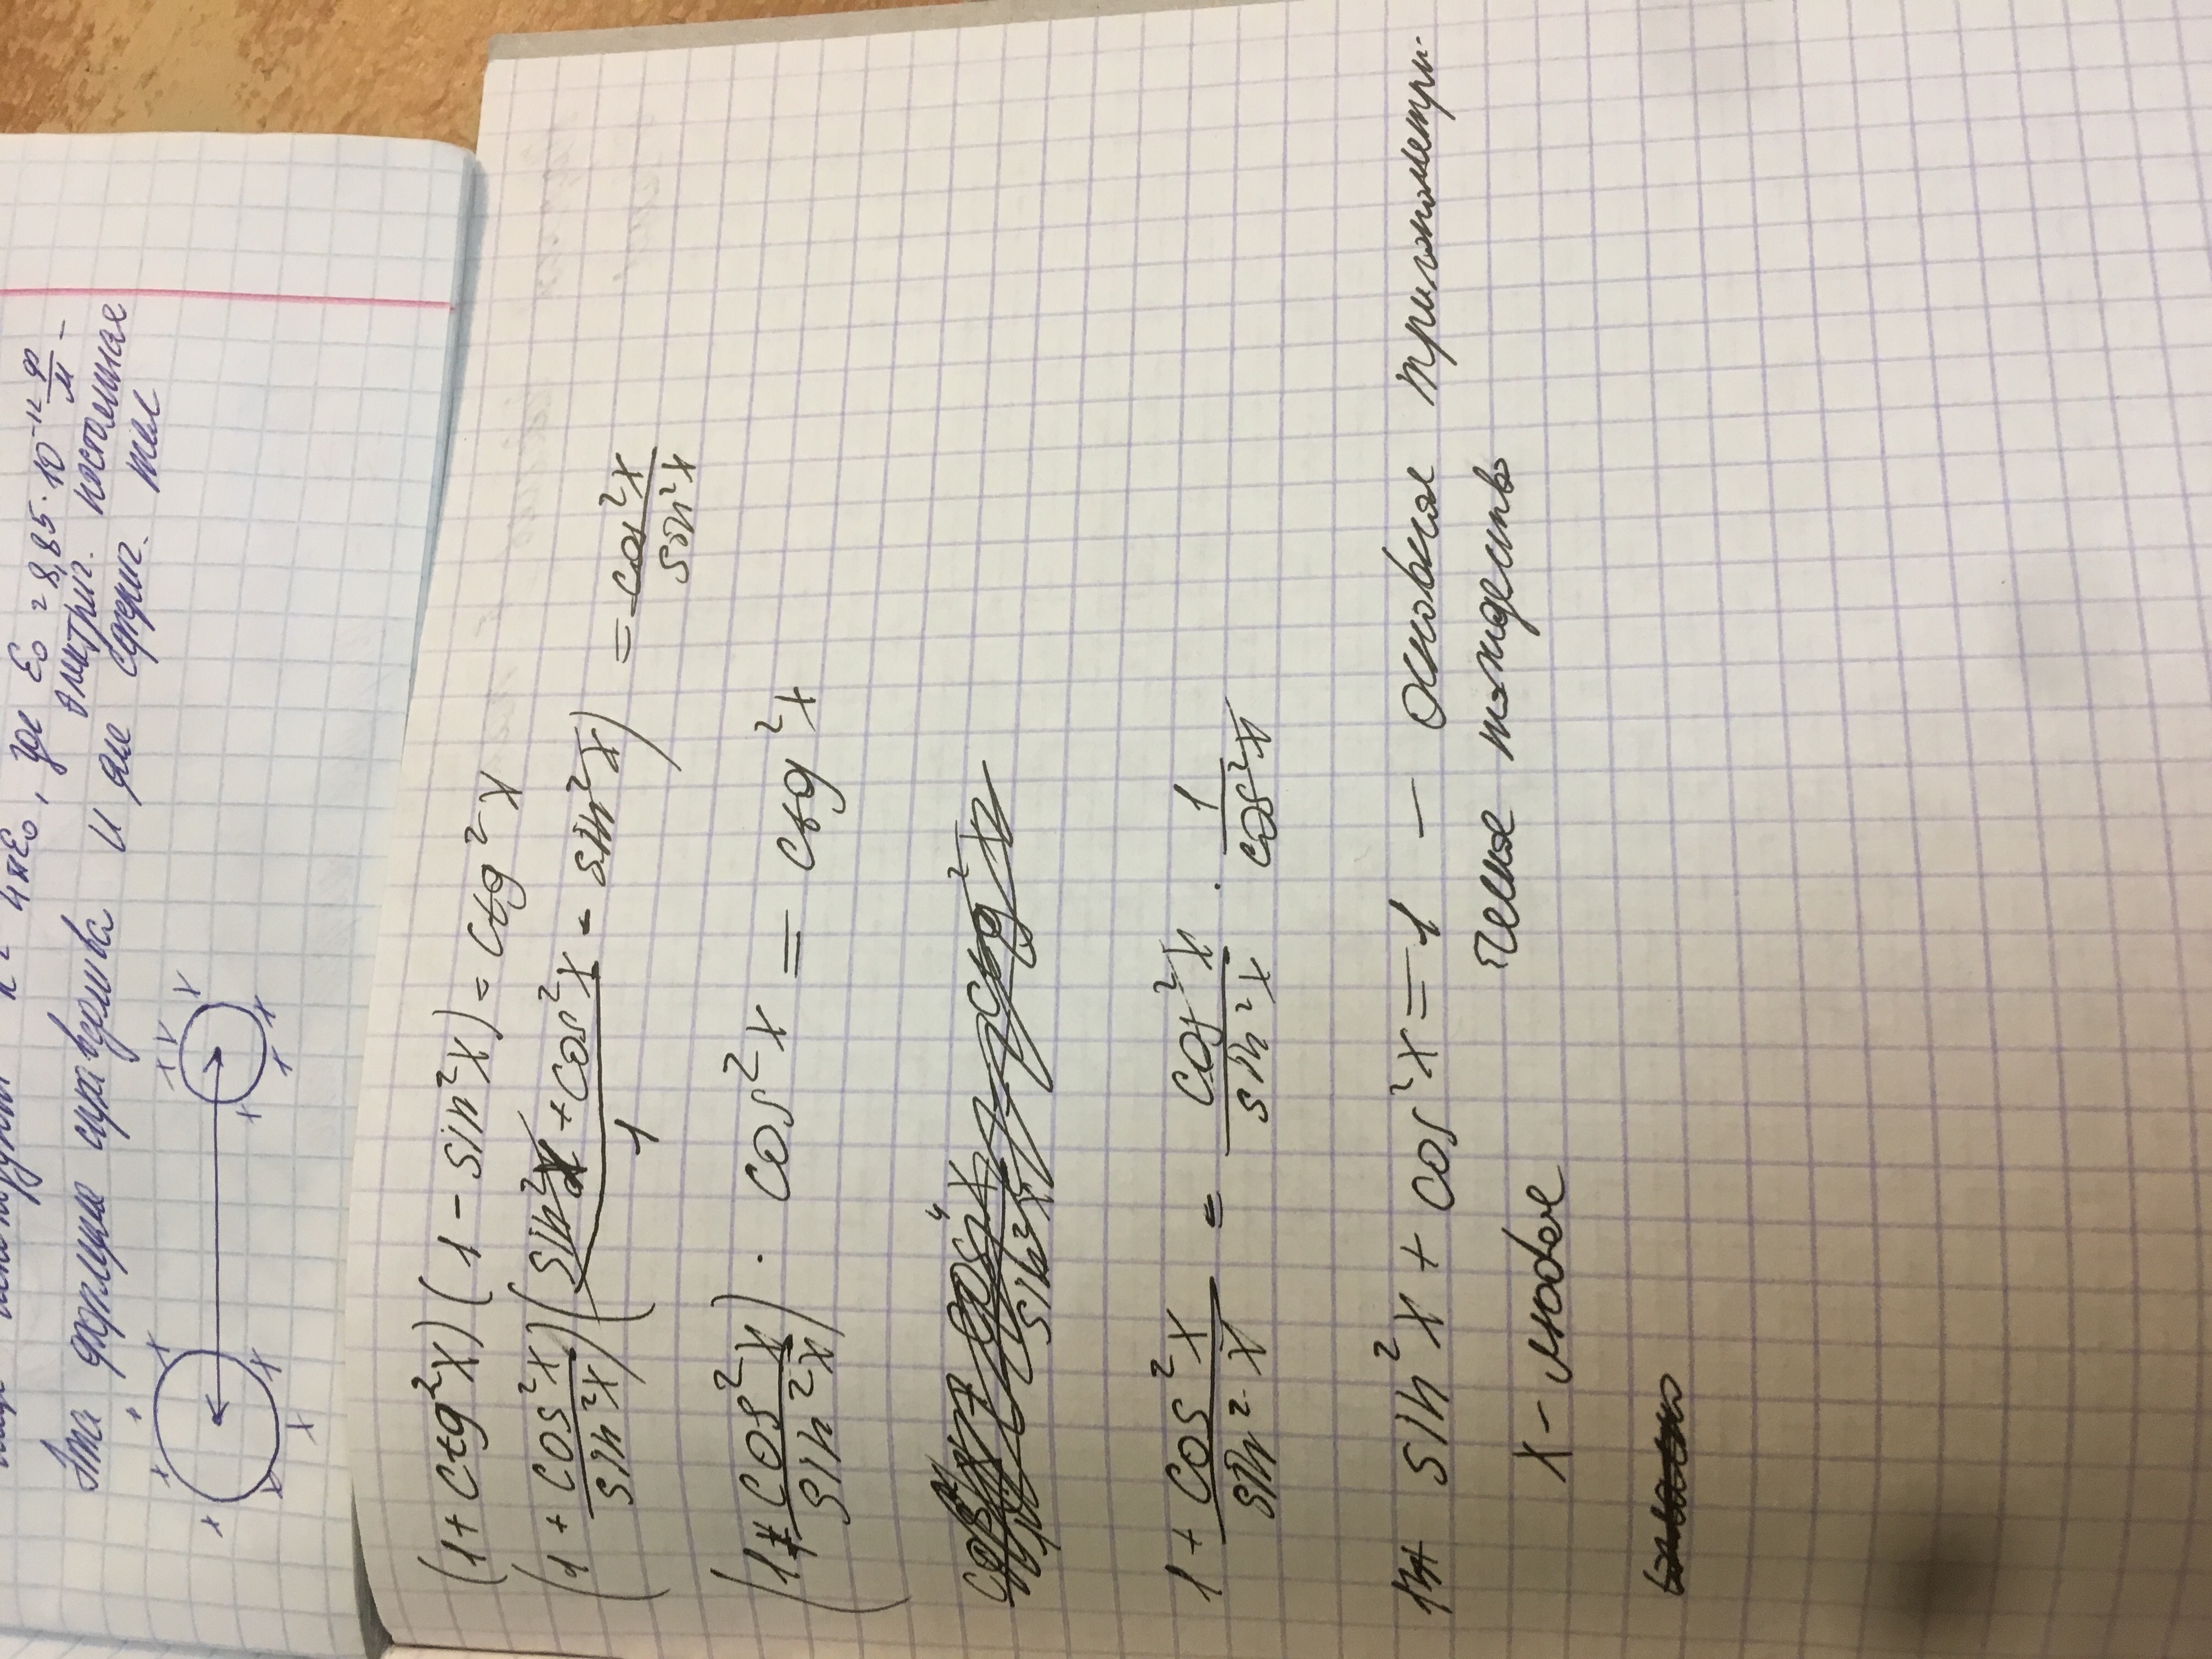 где ε₀ = 8,85·10⁻¹² Ф/м –
электрич. постоянная
Эта формула справедлива и для сферич. тел
(1 + ctg²x)(1 – sin²x) = ctg²x
(1 + cos²x/sin²x)((sin²x + cos²x)/1 - sin²x) = cos²x/sin²x
(1+ cos²x/sin²x) · cos²x = ctg²x
1 + cos²x/sin²x = cos²x/sin²x · 1/cos²x
sin²x + cos²x = 1 – основная тригонометри-
x – любое